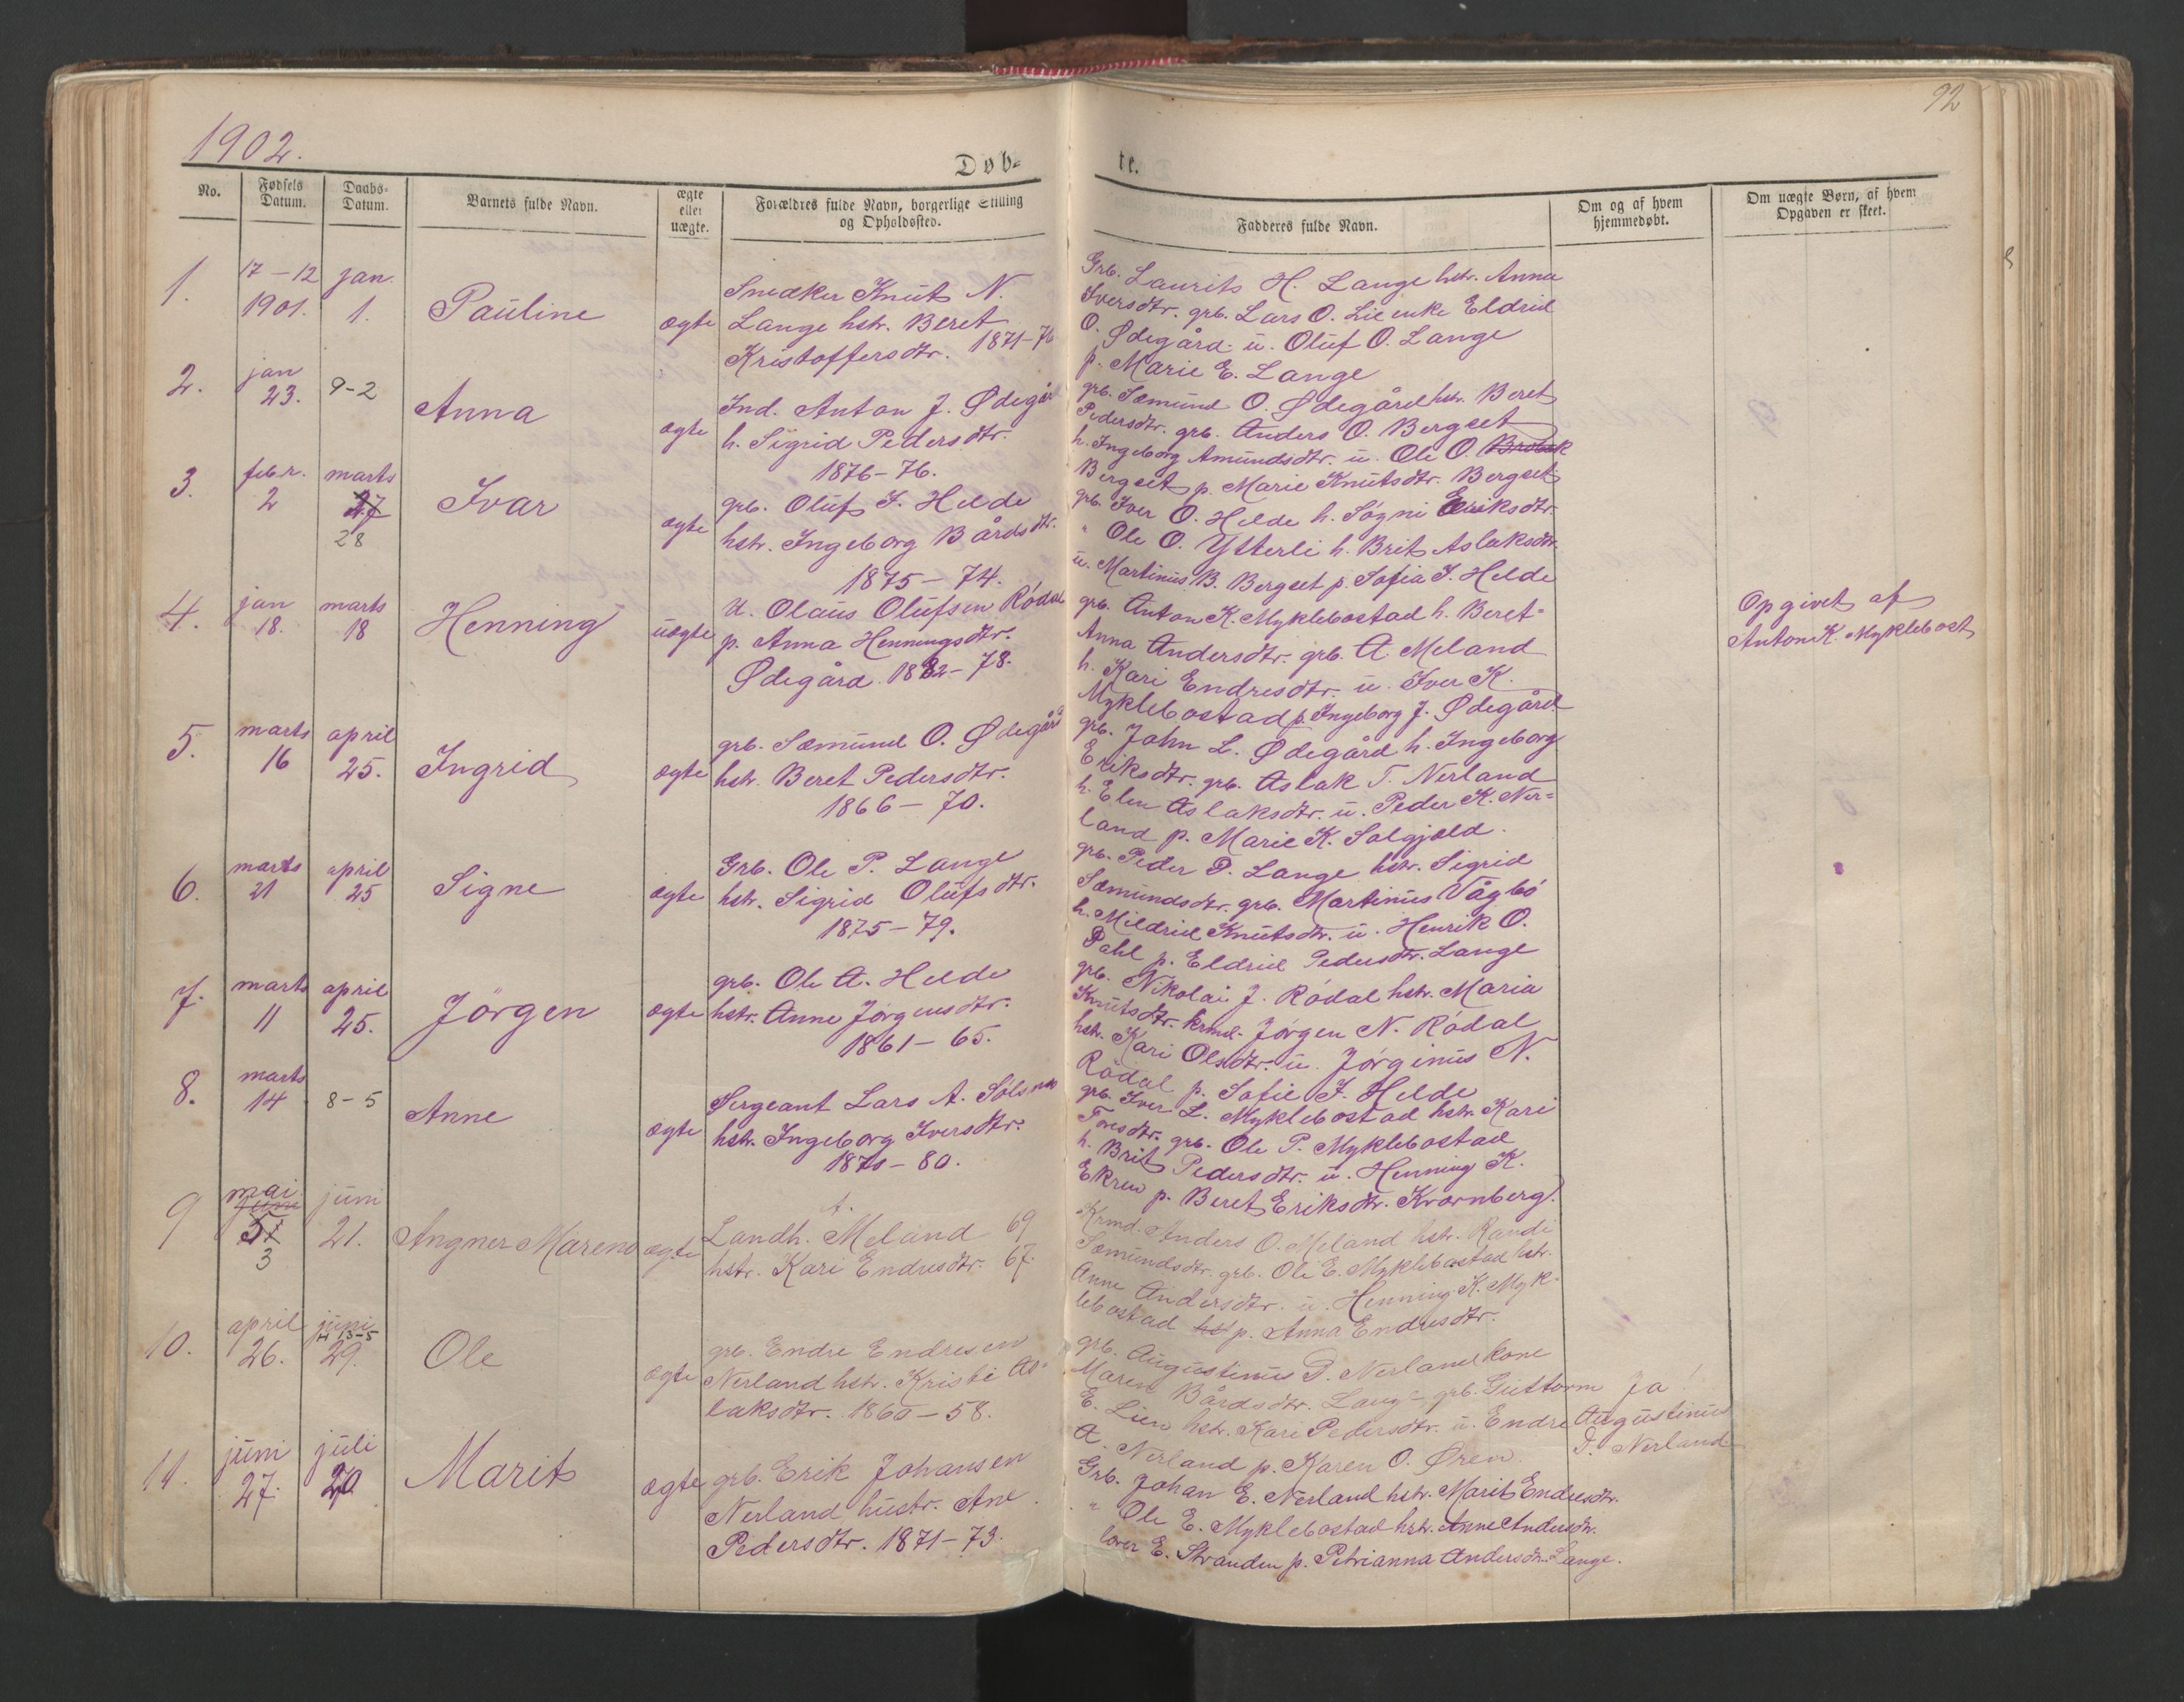 92
1902.
Døb-
te.
No.
Fødsels Datum.
Daabs- Datum.
Barnets fulde Navn.
ægte eller uægte.
Forældres fulde Navn, borgerlige Stilling
og Opholdssted.
Fadderes fulde Navn.
Om og af hvem
hjemmedøbt.
Om uægte Børn, af hvem
Opgaven er skeet.
1.
17-12
1901.
jan.
1.
Pauline
ægte
Snedker Knut N.
Lange hstr. Beret
Kristoffersdtr. 1871-76
Grb. Laurits H. Lange hstr. Anna
Iversdtr. grb. Lars O. Lie enke Eldrid
O. Ødegård u. Oluf O. Lange
p. Marie E. Lange
2.
jan
23.
9-2
Anna
ægte
Ind. Anton J. Ødegård
h. Sigrid Pedersdtr.
1876-76.
grb. Sæmund O. Ødegård hstr. Beret
Pedersdtr. grb. Anders O. Bergset
h. Ingeborg Amundsdtr. u. Ole O.
Bergset p. Marie Knutsdtr. Bergset
3.
febr.
2
marts
27
28
Ivar
ægte
grb. Oluf I. Helde
hstr. Ingeborg Bårdsdtr.
1875-74.
grb. Iver O. Helde h. Søgni Eriksdtr
" Ole O. Ytterli h. Brit Aslaksdtr.
u. Martinus B. Bergset p. Sofia I. Helde
4.
jan
18.
marts
18
Henning
uægte
U. Olaus Olufsen Rödal
p. Anna Henningsdtr.
Ødegård. 1882-78.
grb. Anton K. Myklebostad h. Beret-
Anna Andersdtr. grb. A. Meland
h. Kari Endresdtr. u. Iver K.
Myklebostad p. Ingeborg J. Ødegård
Opgivet af
Anton K. Myklebost
5.
marts
16
april
25.
Ingrid
ægte
grb. Sæmund O. Ødegård
hstr. Beret Pedersdtr.
1866-70.
grb. John L. Ødegård h. Ingeborg
Eriksdtr. grb. Aslak T. Nerland
h. Elen Aslaksdtr. u. Peder K. Ner=
land p. Marie K. Solgjeld.
6.
marts
21
april
25
Signe
ægte
Grb. Ole P. Lange
hstr. Sigrid Olufsdtr.
1875-79.
grb. Peder P. Lange hstr. Sigrid
Sæmundsdtr. grb. Martinus Vågbö
h. Mildrid Knutsdtr. u. Henrik O.
Dahl p. Eldrid Pedersdtr. Lange
7.
marts
11
april
25.
Jörgen
ægte
grb. Ole A. Helde
hstr. Anne Jörgensdtr.
1861-65.
grb. Nikolai J. Rödal hstr. Maria
Knutsdtr. krmd. Jörgen N. Rödal
hstr. Kari Olsdtr. u. Jörginus N.
Rödal p. Sofie I. Helde
8.
marts
14
8-5
Anne
ægte
Sergeant Lars A. Sölsnes
hstr. Ingeborg Iversdtr.
1871-80.
grb. Iver L. Myklebostad hstr. Kari
Toresdtr. grb. Ole P. Myklebostad
h. Brit Pedersdtr. u. Henning K.
Ekren p. Beret Eriksdtr. Kvarnberg.
9
mai
3
juni
21.
Angner Marens
ægte
Landh. A. Meland 69
hstr. Kari Endresdtr. 67.
Krmd. Anders O. Meland hstr. Randi
Sæmundsdtr. grb. Ole E. Myklebostad hstr.
Anne Andersdtr. u. Henning K. Myk-
lebostad p. Anna Endresdtr.
10.
april
26.
juni
H 13-5
29.
Ole
ægte
grb. Endre Endresen
Nerland hstr. Kristi As-
laksdtr. 1865-58.
grb. Augustinus P. Nerland kone
Maren Bårdsdtr. Lange grb. Guttorm
E. Lien hstr. Kari Pedersdtr. u. Endre
A. Nerland p. Karen O. Ören.
Ja!
Augustinus
P. Nerland
11.
juni
27.
juli
20
Marit
ægte
grb. Erik Johansen
Nerland hustr. Ane
Pedersdtr. 1871-73.
Grb. Johan E. Nerland hstr. Marit Endresdtr.
" Ole E. Myklebostad hstr. Anne Andersdtr.
E. Stranden p. Petrianna Andersdtr. Lange.